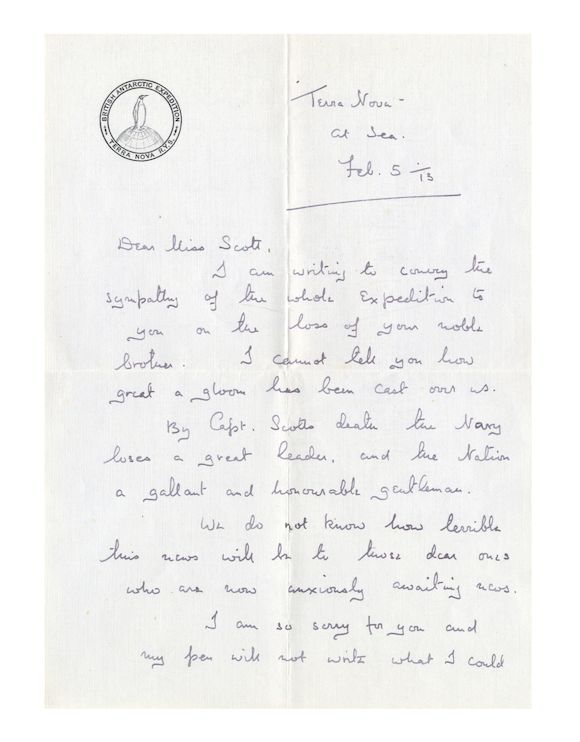 BRITISH ANTARCTIC EXPEDITION
TERRA NOVA R.Y.S.
Terra Nova -
at Sea.
Feb. 5/13
Dear Miss Scott,
I am writing to convey the
sympathy of the whole Expedition to
you on the loss of your noble
brother. I cannot tell you how
great a gloom has been cast over us.
By Capt. Scotts death the Navy
loses a great leader, and the Nation
a gallant and honourable gentleman.
We do not know how terrible
this news will be to those dear ones
who are now anxiously awaiting news.
I am so sorry for you and
my pen will not write what I could